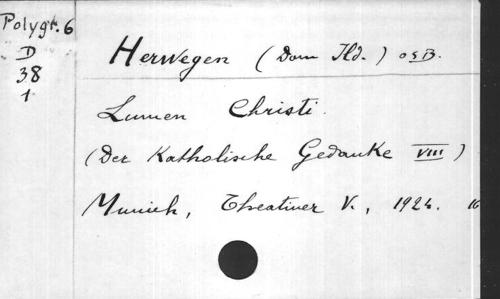 Polygr. 6
D
38
1
Herwegen (Dom Ild.) OSB.
Lumen Christi.
(Der Katholische Gedanke VIII)
Munich, Theatiner V., 1924. 16